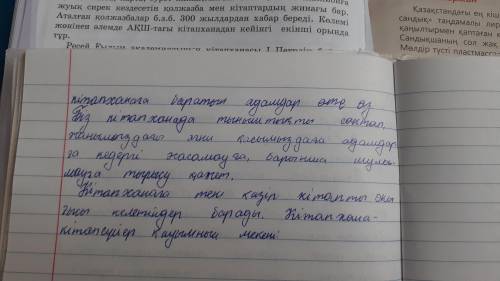 жуық сирек кездесетін қолжазба мен кітаптардың жинағы бар.
Аталған қолжазбалар б.з.б. 300 жылдардан хабар береді. Көлемі
жөнінен әлемде АҚШ-тағы кітапханадан кейінгі екінші орында
тұр.
Ресей Ғылым академиясының кітапханасы I Петрдің
Қазақстандағы ең кіш
сандық» таңдамалы лер
қаңылтырмен қаптаған к
Сандықшаның сол жақ
Мөлдір түсті пластмасса
кітапханаға баратын адамдар өте аз
Біз кітапханада тыныштықты сақтап,
жанымыздағы яғни қасымыздағы адамдар-
ға кедергі жасамауға, барынша шулы-
мауға тырысу қажет.
Кітапханаға тек қазір кітапты оқы
ғысы келетіндер барады. Кітапхана-
кітапсүйер қауымның мекені.